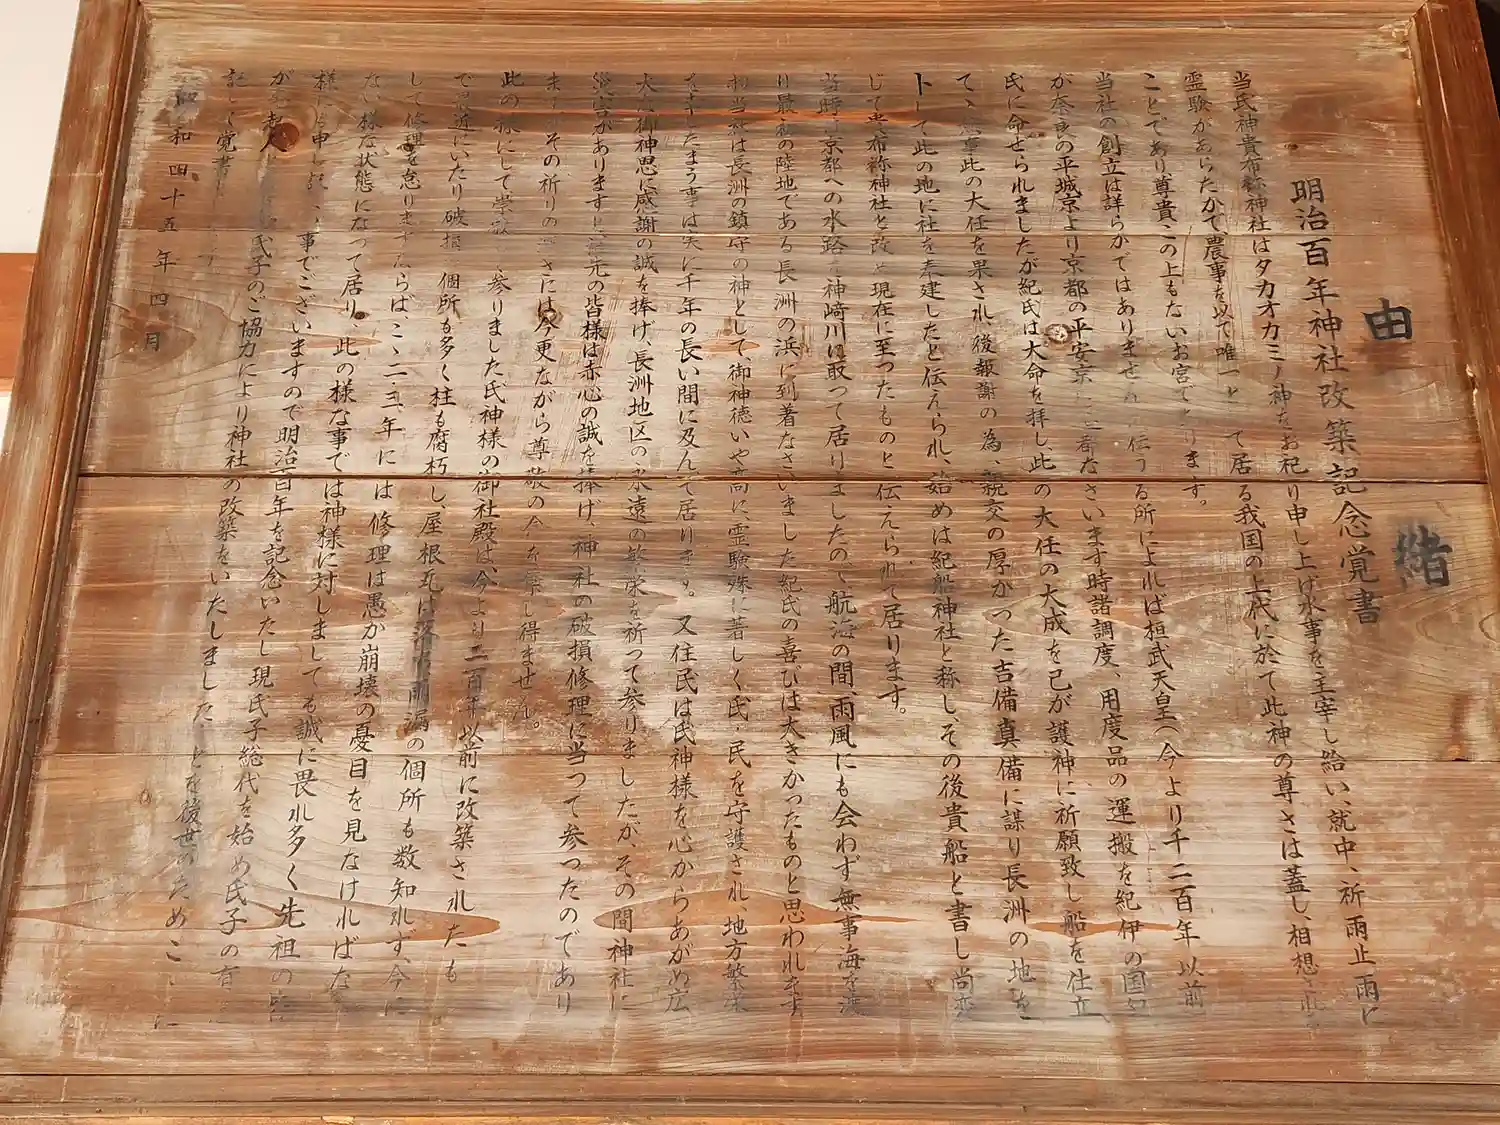 由緒
明治百年神社改築記念覚書
当氏神貴布祢神社はタカオカミノ神をお祀り申し上げ水事を主宰し給い、就中、祈雨止雨に
霊験があらたかで、農事を以て唯一と て居る我国の上代に於て此神の尊さは蓋し、相想され
ことであり尊貴この上もないお宮であります。
当社の創立は詳らかではありませ 伝うる所によれば桓武天皇(今より千二百年以前
が奈良の平城京より京都の平安京に なさいます時諸調度、用度品の運搬を紀伊の国
氏に命ぜられましたが紀氏は大命を拝し、此の大任の大成を己が護神に祈願致し船を仕立
て、無事此の大任を果され、後報謝の為、親交の厚かった吉備真備に謀り長洲の地を
トして此の地に社を奉建したと伝えられ、始めは紀船神社と称し、その後貴船と書し尚
じて貴布祢神社と改め現在に至ったものと伝えられて居ります。
当時は京都への水路を神崎川に取って居りましたので航海の間、雨風にも会わず無事海を渡
り最初の陸地である長洲の浜に到着なさいました紀氏の喜びは大きかったものと思われます
当社は長洲の鎮守の神として、御神徳いや高に霊験殊に著しく氏 民を守護され地方繁栄
たまう事は実に千年の長い間に及んで居ります。又住民は氏神様を心からあがめ広
大な御神恩に感謝の誠を捧げ、長洲地区の永遠の繁栄を祈って参りましたが、その間神社に
災害がありますと 先の皆様は赤心の誠を捧げ、神社の破損修理に当って参ったのであり
ます その祈りの さには今更ながら尊敬の念を禁じ得ません。
此の様にして崇敬 参りました氏神様の御社殿は、今より二百年以前に改築されたも
で 近にいたり破損 個所も多く柱も腐朽し、屋根瓦は落 雨漏の個所も数知れず、今に
して修理を怠りますならば、ここ二・三年には修理は愚か崩壊の憂目を見なければな
ない様な状態になって居り、此の様な事では神様に対しましても誠に畏れ多く先祖の
様に 申し 事でございますので明治百年を記念いたし現氏子総代を始め氏子の有
が 氏子のご協力により神社の改築をいたしました ことを後世のためこ に
記して覚書
昭和四十五年四月